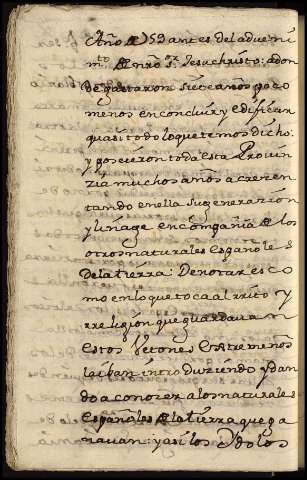 Año D 59 antes del adveni
mto. de nro. Sr. Jesuchristo: adon
de gastaron siete años poco
menos en concluir y edificar
quasi todo lo que temos dicho:
y poseieron toda esta Provin
zia muchos años acrezen
tando en ella su generazion
y linage en compañia de los
otros naturales Españoles
de la tierra: De notar es co
mo en lo que toca al rrito y
rreligion que guardavan
estos Vetones Estremeños
la iban introduziendo y dan
do a conozer a los naturales
Españoles de la tierra que ga
navan: y asi los Idolos